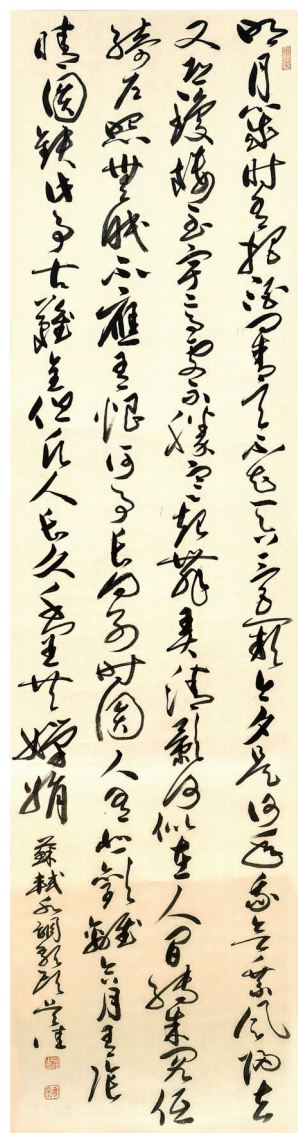 明月幾時有把酒問青天不知天上宮闕今夕是何年我欲乘風歸去
又恐瓊樓玉宇高處不勝寒起舞弄清影何似在人間轉朱閣低
綺戶照無眠不應有恨何事長向別時圓人有悲歡離合月有陰
晴圓缺此事古難全但願人長久千里共嬋娟
蘇軾水調歌頭